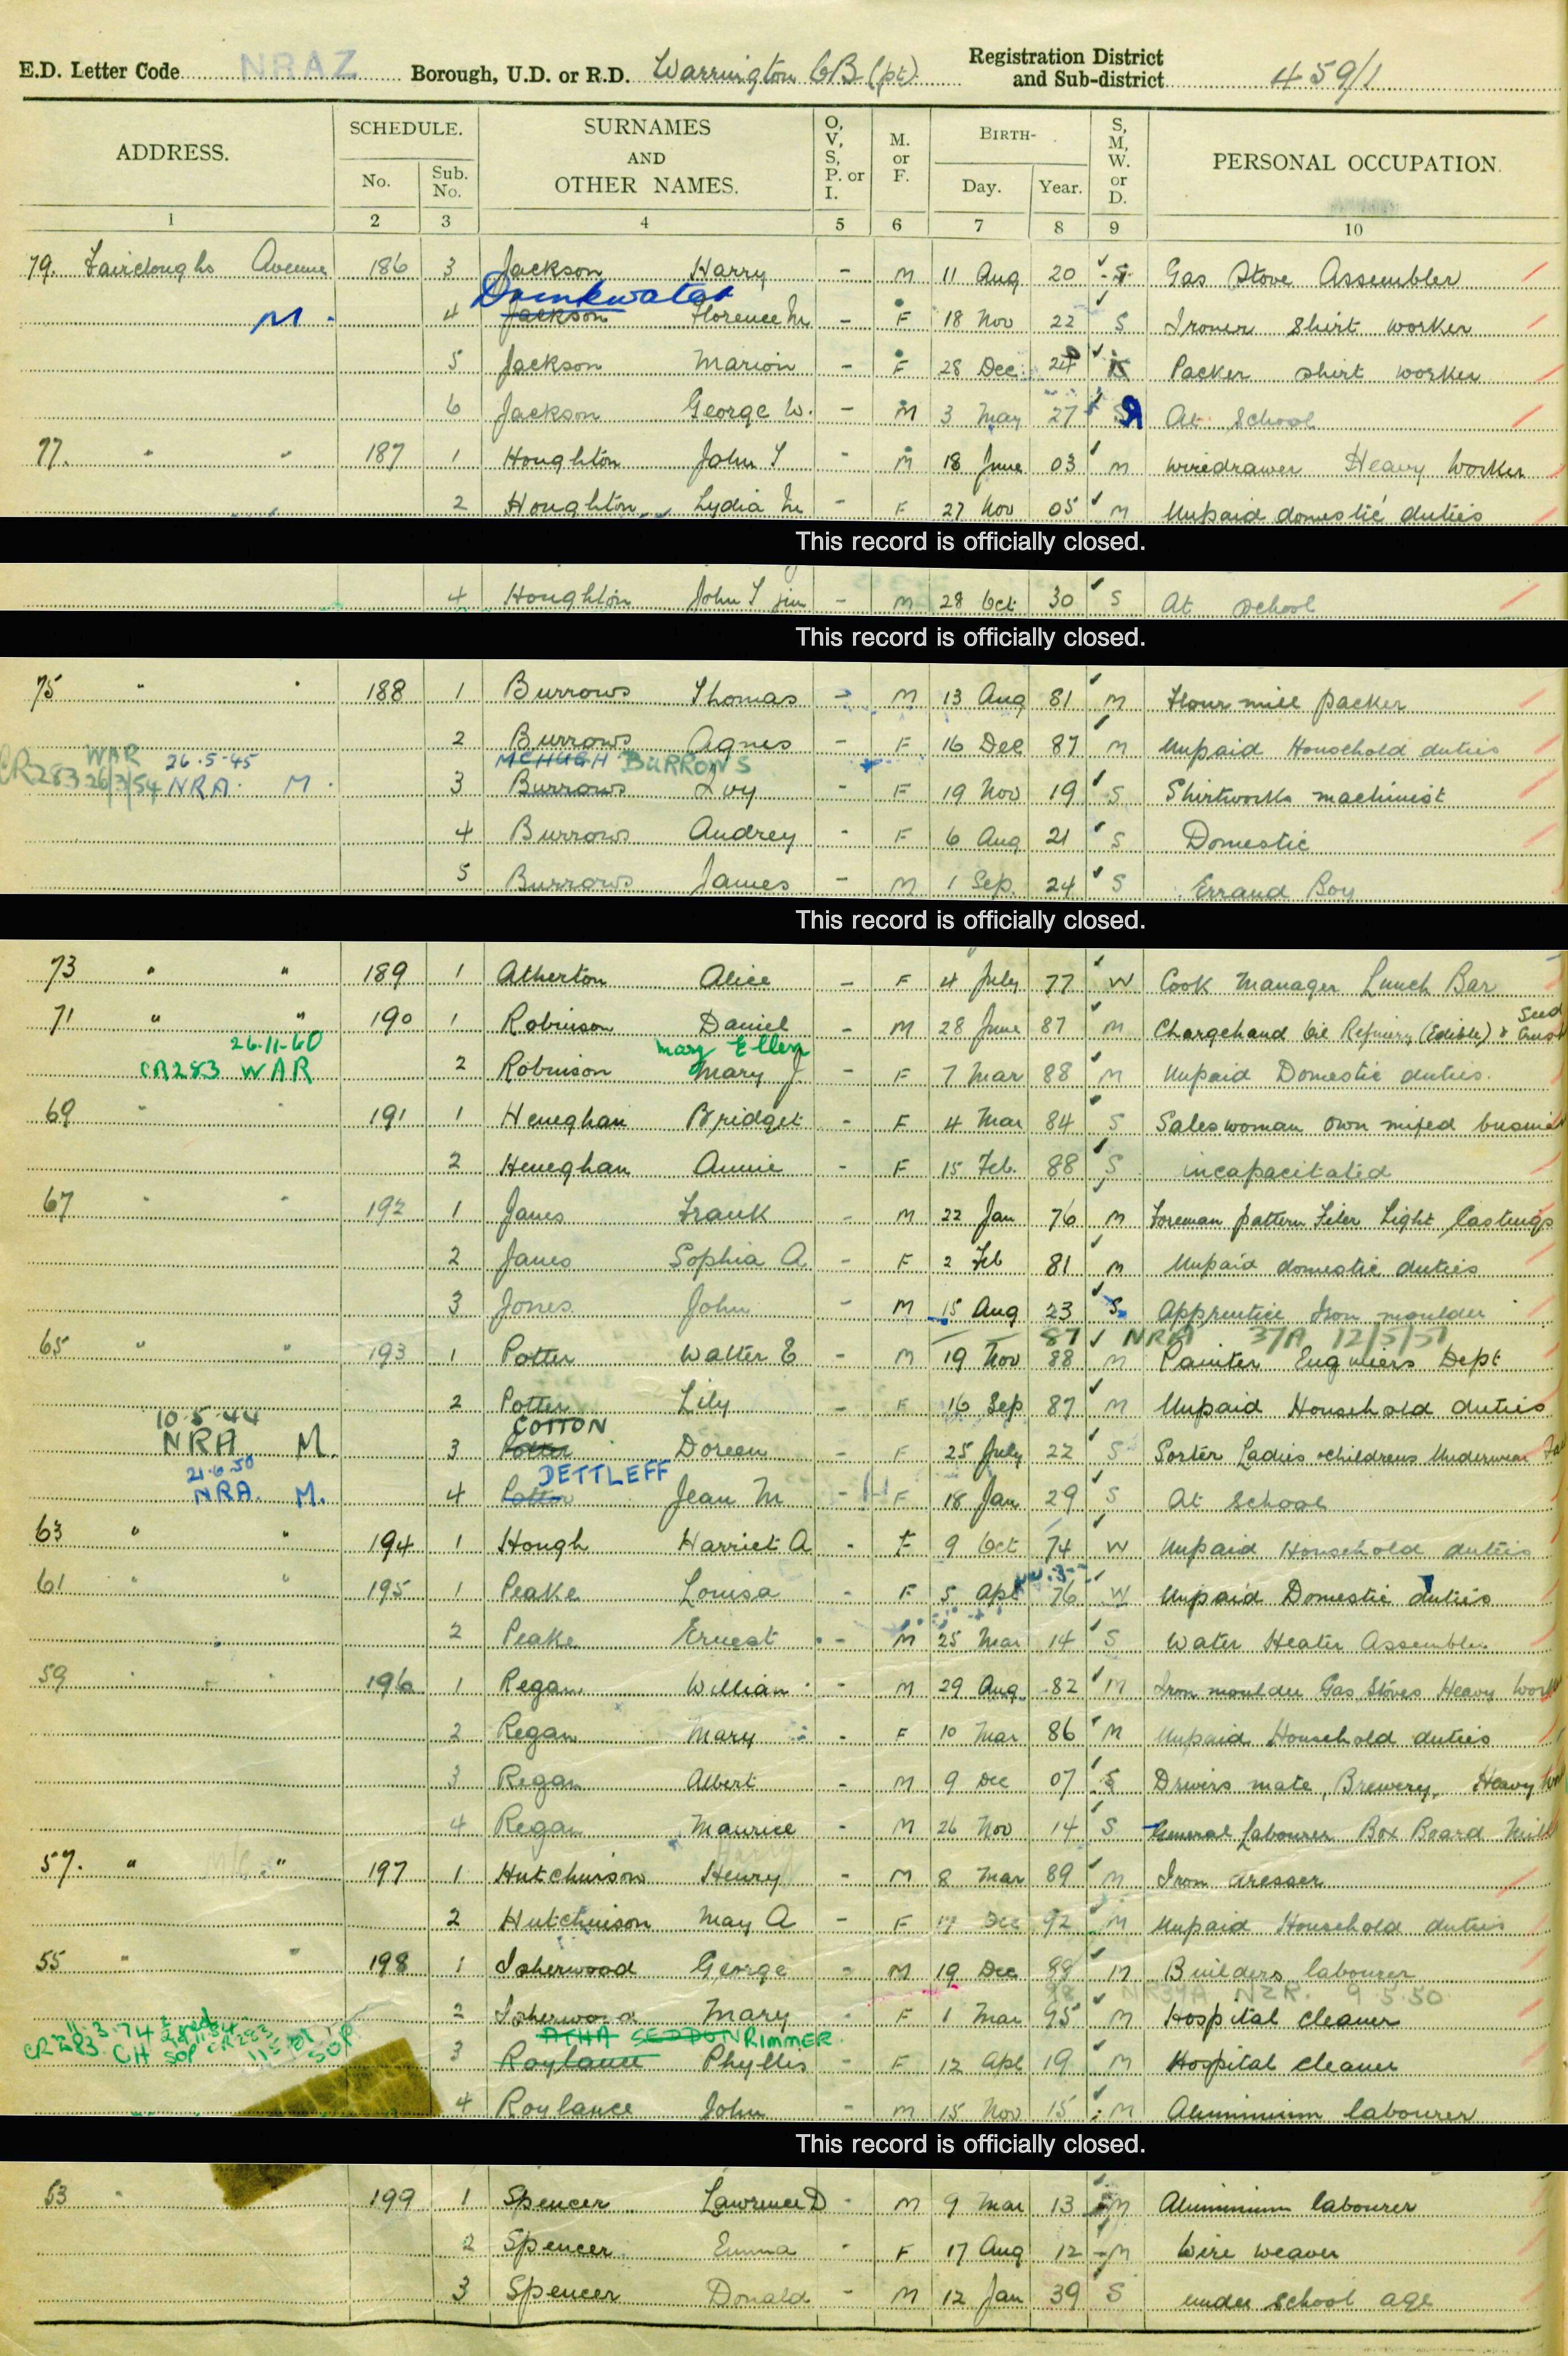 E.D. Letter Code NRAZ Borough, U.D. or R.D. Warrington CB (pt) Registration District and Sub-district 459/1
ADDRESS. SCHEDULE. No. Sub. No. SURNAMES AND OTHER NAMES. O, V, S, P. or I. M. or F. BIRTH- Day. Year. S, M, W. or D. PERSONAL OCCUPATION.
1 2 3 4 5 6 7 8 9 10
79. Faircloughs Avenue 186 3 Jackson Harry - M 11 Aug 20 S Gas Stove Assembler
Drinkwater
M. 4 Jackson Florence M - F 18 Nov 22 S Ironer Shirt worker
5 Jackson Marion - F 28 Dec 24 S Packer shirt worker
6 Jackson George W. - M 3 May 27 S At School
77. " " 187 1 Houghton John T - M 18 June 03 M Wiredrawer Heavy Worker
2 Houghton Lydia M - F 27 Nov 05 M Unpaid domestic duties
This record is officially closed.
4 Houghton John T jun - M 28 Oct 30 S At school
This record is officially closed.
75 " " 188 1 Burrows Thomas - M 13 Aug 81 M Flour mill packer
2 Burrows Agnes - F 16 Dec 87 M Unpaid Household duties
WAR 26.5.45 MCHUGH BURROWS
CR283 26/3/54 NRA. M. 3 Burrows Ivy - F 19 Nov 19 S Shirtworks machinist
4 Burrows Audrey - F 6 Aug 21 S Domestic
5 Burrows James - M 1 Sep. 24 S Errand Boy
This record is officially closed.
73 " " 189 1 Atherton Alice - F 4 July 77 W Cook Manager Lunch Bar
71 " " 190 1 Robinson Daniel - M 28 June 87 M Chargehand Oil Refinery (Edible) & Seed
26-11-60 Mary Ellen
CR283 WAR 2 Robinson Mary J. - F 7 Mar 88 M Unpaid Domestic duties.
69 " " 191 1 Heneghan Bridget - F 4 Mar 84 S Saleswoman own mixed business
2 Heneghan Annie - F 15 Feb. 88 S incapacitated
67 " " 192 1 Janes Frank - M 22 Jan 76 M Foreman pattern Filer Light Castings
2 Janes Sophia A - F 2 Feb 81 M Unpaid domestic duties
3 Jones John - M 15 Aug 23 S Apprentice Iron moulder
87 NRA 37A 12/5/51
65 " " 193 1 Potter Walter E - M 19 Nov 88 M Painter Engineers Dept
2 Potter Lily - F 16 Sep 87 M Unpaid Household duties
10-5-44 COTTON
NRA M. 3 Potter Doreen - F 25 July 22 S Sorter Ladies & childrens Underwear
21.6.50 DETTLEFF
NRA. M. 4 Potter Jean M - F 18 Jan 29 S At School
63 " " 194 1 Hough Harriet A - F 9 Oct 74 W Unpaid Household duties
61 " " 195 1 Peake Louisa - F 5 Apl 76 W Unpaid Domestic duties
2 Peake Ernest - M 25 Mar 14 S Water Heater Assembler
59 " " 196 1 Regan William - M 29 Aug 82 M Iron moulder Gas Stoves Heavy Work
2 Regan Mary - F 10 Mar 86 M Unpaid Household duties
3 Regan Albert - M 9 Dec 07 S Drivers mate, Brewery, Heavy
4 Regan Maurice - M 26 Nov 14 S General Labourer Box Board Mill
Harry
57. " " 197 1 Hutchinson Henry - M 8 Mar 89 M Iron dresser
2 Hutchinson May A - F 17 Dec 92 M Unpaid Household duties
55 " " 198 1 Isherwood George - M 19 Dec 88 M Builders labourer
98 NR37A NZR. 9 5.50
2 Isherwood Mary - F 1 Mar 95 M Hospital cleaner
11.3.74 ATHA SEDDON RIMMER
CR283 CH SOP CR283 SOP 3 Roylance Phyllis - F 12 Apl 19 M Hospital cleaner
4 Roylance John - M 15 Nov 15 M Aluminium labourer
This record is officially closed.
53 " 199 1 Spencer Lawrence D - M 9 Mar 13 M Aluminium labourer
2 Spencer Emma - F 17 Aug 12 M Wire weaver
3 Spencer Donald - M 12 Jan 39 S under school age